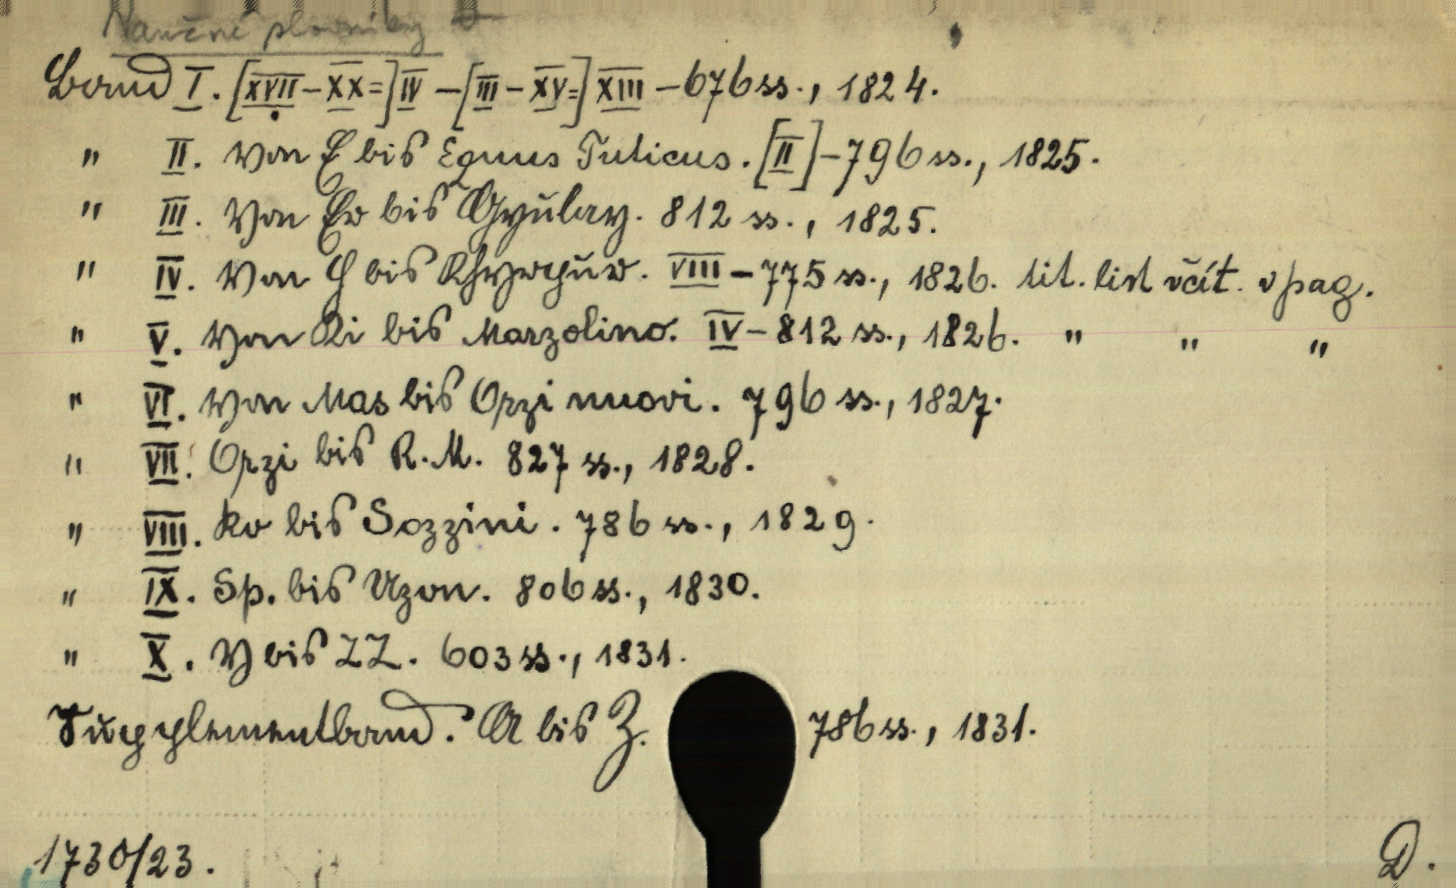 Naučné slovníky
Band I. [XVII-XX=] IV - [III-XV=] XIII - 676 ss., 1824.
" II. Von E bis Equus Tuticus. [II] - 796 ss., 1825.
" III. Von Er bis Gyulay. 812 ss., 1825.
" IV. Von H bis Khyrpur. VIII - 775 ss., 1826. tit. list včít. v pag.
" V. Von Ki bis Marzolino. IV - 812 ss., 1826. " " "
" VI. Von Mas bis Orzi nuovi. 796 ss., 1827.
" VII. Orzi bis R.M. 827 ss., 1828.
" VIII. Ro bis Sozzini. 786 ss., 1829.
" IX. Sp. bis Uzon. 806 ss., 1830.
" X. V bis ZZ. 603 ss., 1831.
Supplementband. A bis Z. 786 ss., 1831.
1730/23. D.